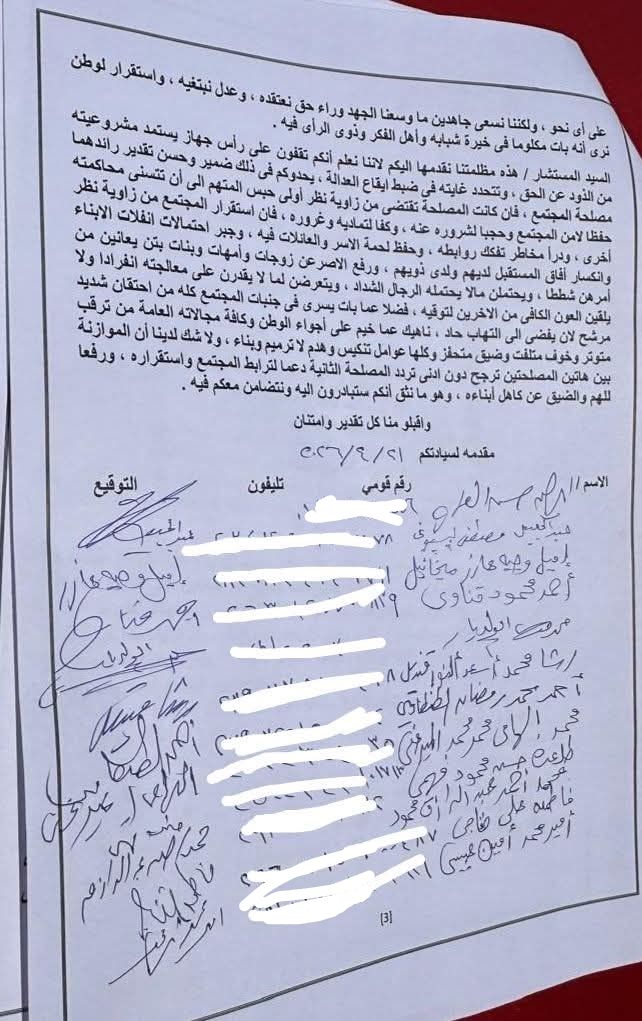 على أى نحو ، ولكننا نسعى جاهدين ما وسعنا الجهد وراء حق نعتقده ، وعدل نبتغيه ، واستقرار لوطن
نرى أنه بات مكلوما فى خيرة شبابه وأهل الفكر وذوى الرأى فيه .
السيد المستشار / هذه مظلمتنا نقدمها اليكم لاننا نعلم أنكم تقفون على رأس جهاز يستمد مشروعيته
من الذود عن الحق ، وتتحدد غايته فى ضبط ايقاع العدالة ، يحدوكم فى ذلك ضمير وحسن تقدير رائدهما
مصلحة المجتمع ، فإن كانت المصلحة تقتضى من زاوية نظر أولى حبس المتهم الى أن تتسنى محاكمته
حفظا لامن المجتمع وحجبا لشروره عنه ، وكفا لتماديه وغروره ، فان استقرار المجتمع من زاوية نظر
أخرى ، ودرأ مخاطر تفكك روابطه ، وحفظ لحمة الاسر والعائلات فيه ، وجبر احتمالات انفلات الابناء
وانكسار أفاق المستقبل لديهم ولدى ذويهم ، ورفع الاصرعن زوجات وأمهات وبنات بتن يعانين من
أمرهن شططا ، ويحتملن مالا يحتمله الرجال الشداد ، ويتعرضن لما لا يقدرن على معالجته انفرادا ولا
يلقين العون الكافى من الاخرين لتوقيه ، فضلا عما بات يسرى فى جنبات المجتمع كله من احتقان شديد
مرشح لان يفضى الى التهاب حاد ، ناهيك عما خيم على أجواء الوطن وكافة مجالاته العامة من ترقب
متوتر وخوف متلفت وضيق متحفز وكلها عوامل تنكيس وهدم لا ترميم وبناء ، ولا شك لدينا أن الموازنة
بين هاتين المصلحتين ترجح دون ادنى تردد المصلحة الثانية دعما لترابط المجتمع واستقراره ، ورفعا
للهم والضيق عن كاهل أبناءه ، وهو ما نثق أنكم ستبادرون اليه ونتضامن معكم فيه .
واقبلو منا كل تقدير وامتنان
مقدمه لسيادتكم ٢٠٢٦/٤/٢١
الاسم // رقم قومي تليفون التوقيع
مصطفى
إميل وجيه فايز ميخائيل إميل وجيه فايز
أحمد محمود قناوى
رشا محمد أسعد
أحمد محمد رمضان
محمد إلهامى محمد محمد
حسن محمود فهمى
محمد أحمد عبد الرازق محمود
فاطمة على خفاجى
أمير محمد أمين عيسى
[3]